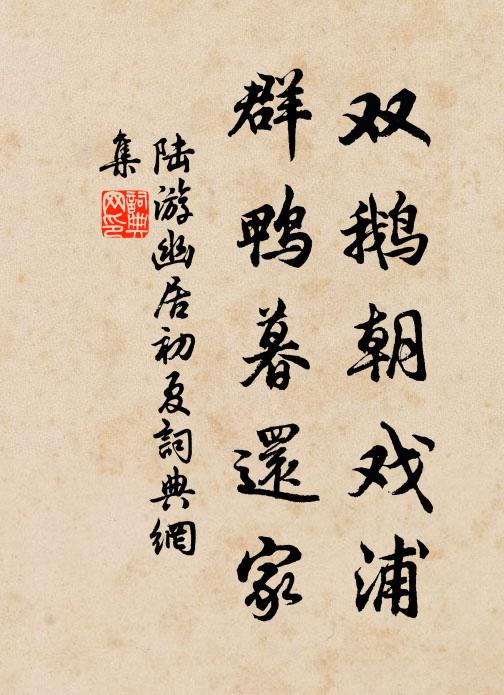 双鹅朝戏浦
群鸭暮還家
陆游幽居初夏詞典網
集
詞典
网印